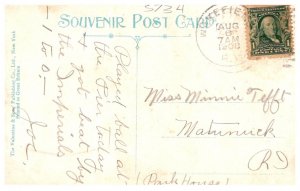 SOUVENIR POST CARD
5/24
AUG
8
AM
1908
The Valentine & Sons' Publishing Co., Ltd., New York
Printed in Great Britain
Played ball at
the Pier today
& got beat by
the Imperials
1 to 0 -
Joe,
Miss Minnie Tefft
Matunuck
RI
(Park House)